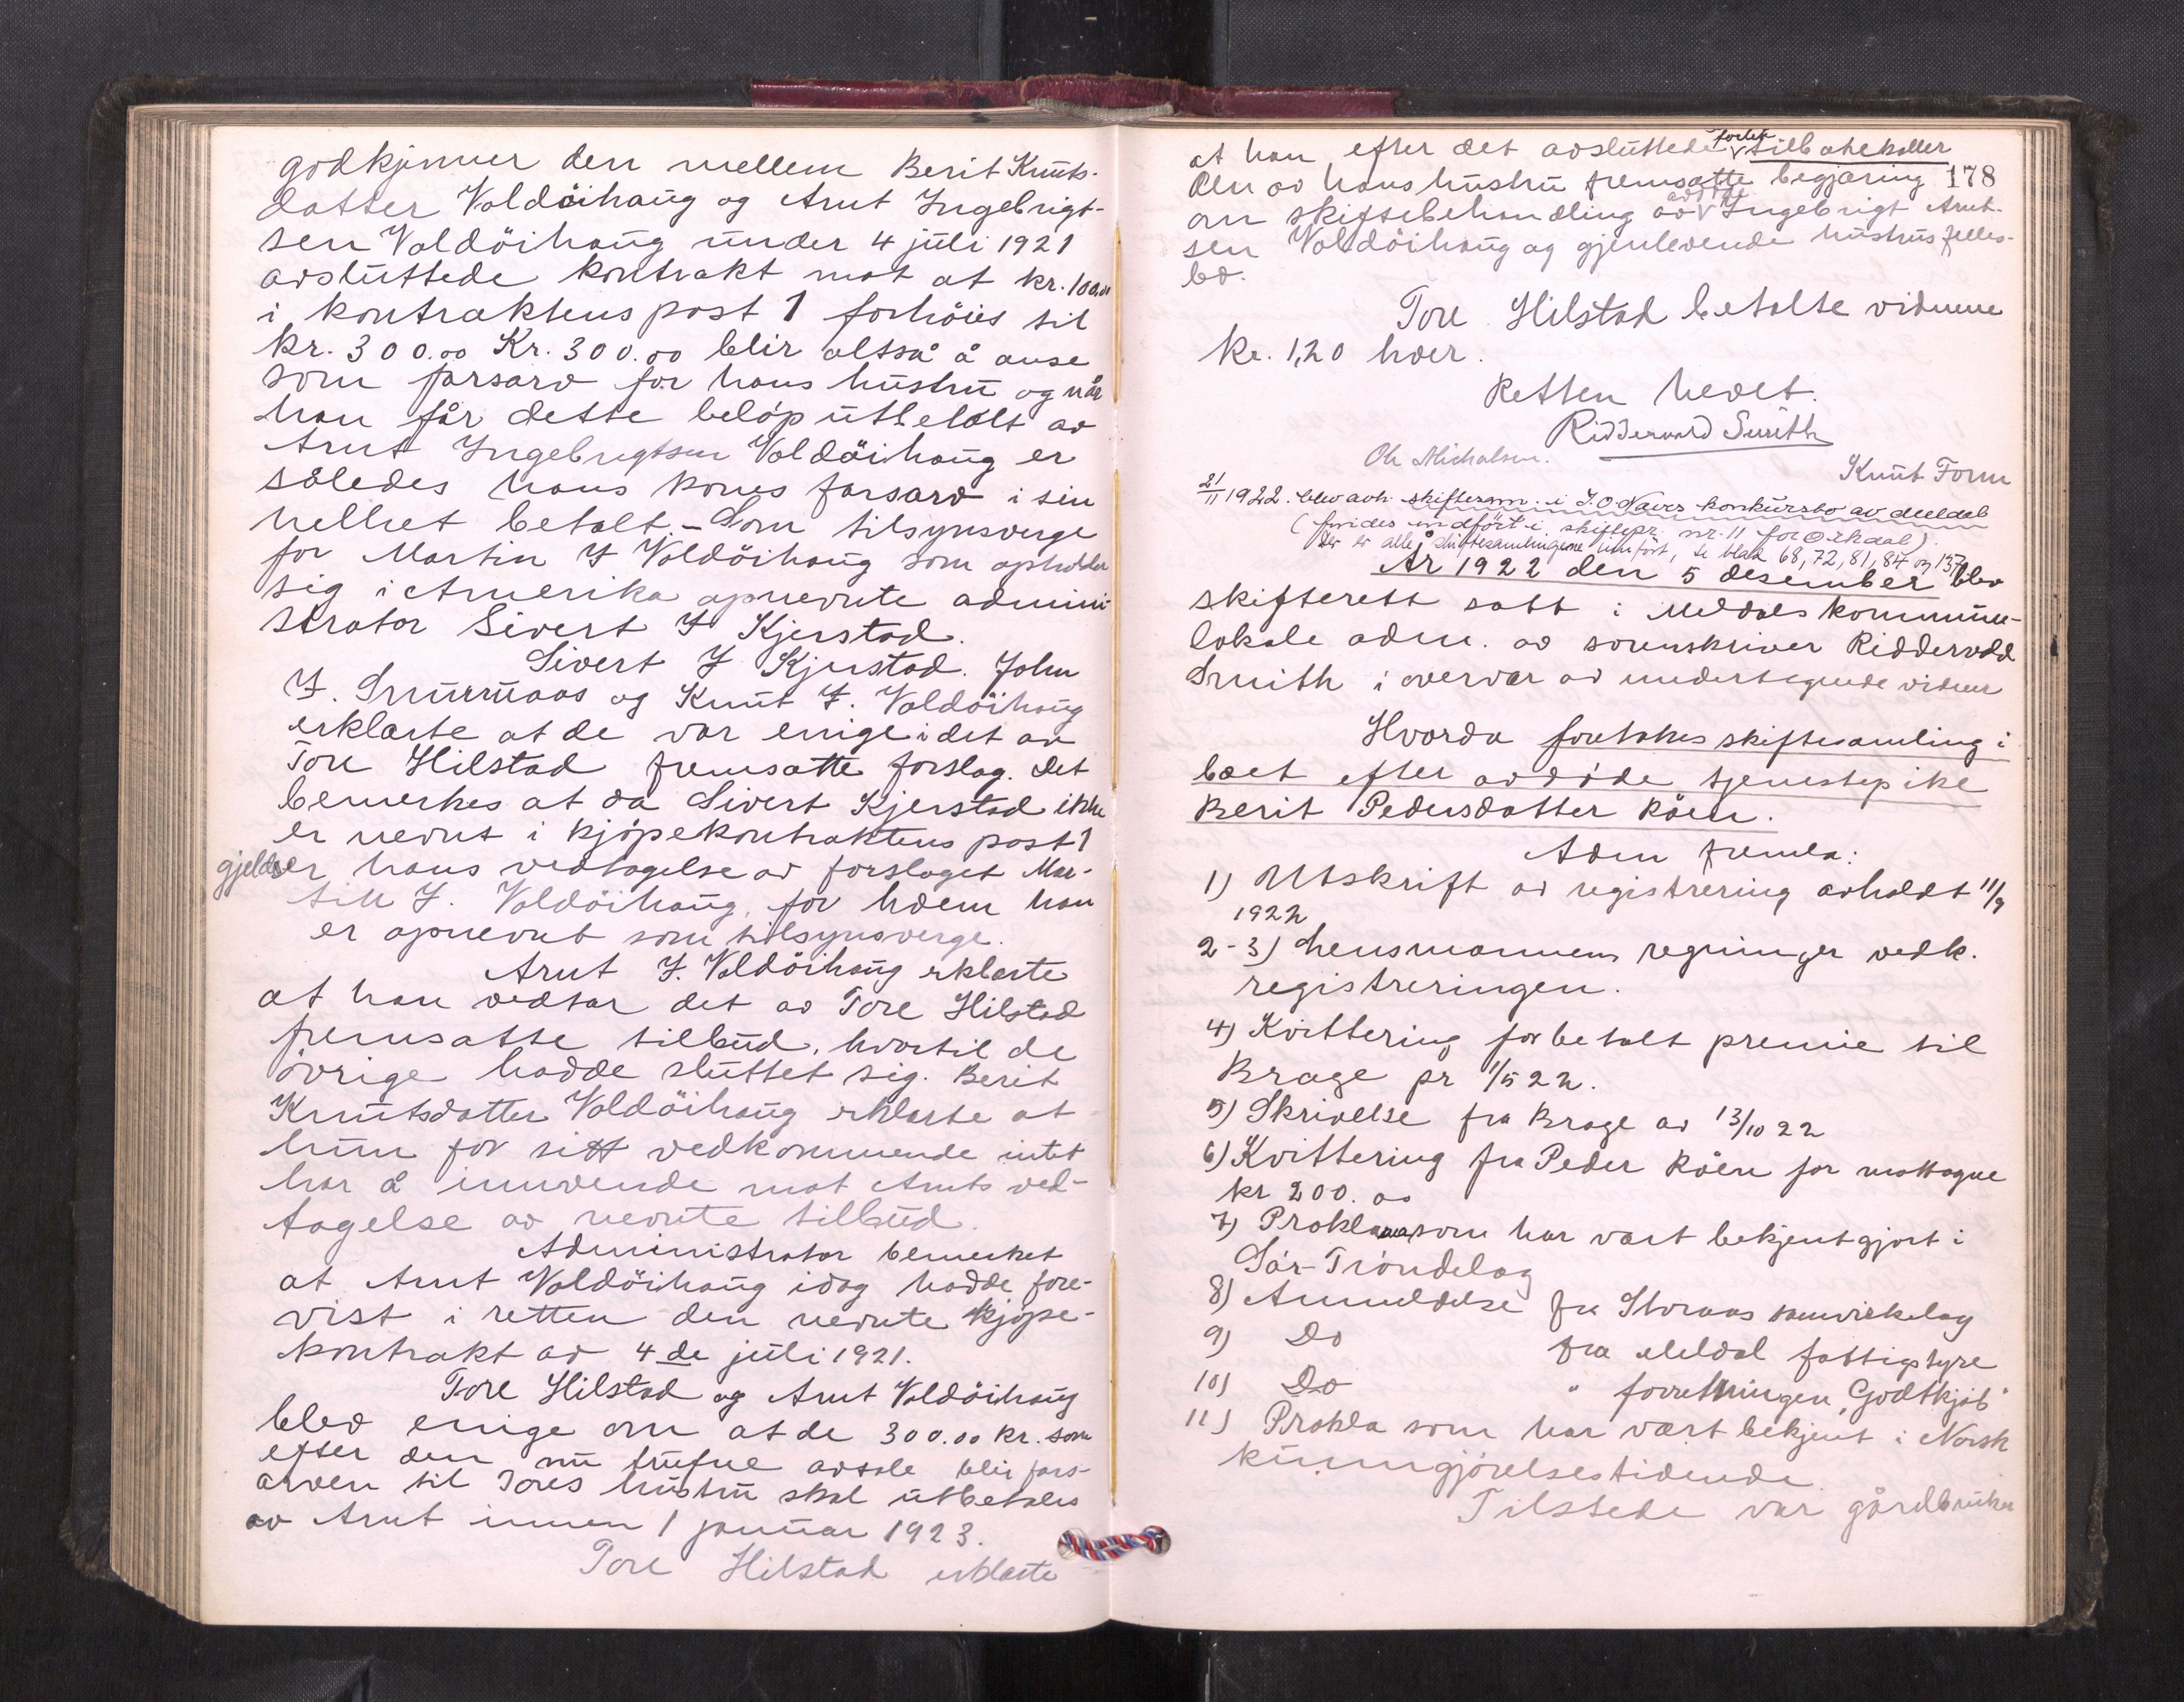 godkjenner den mellem Berit Knuts-
datter Voldöihaug og Arnt Ingebrigt-
sen Voldöihaug under 4 juli 1921
avsluttede kontrakt mot at kr. 100,00
i kontraktens post 1 forhöies til
kr. 300.00 Kr. 300.00 blir altså å anse
som farsarv for hans hustru og når
han får dette belöp utbetalt av
Arnt Ingebrigtsen Voldöihaug er
således hans kones farsarv i sin
helhet betalt. – Som tilsynsverge
for Martin I Voldöihaug som opholder
sig i Amerika opnevnte admini-
strator Sivert I Kjerstad.
Sivert I Kjerstad. John
I. Snurruaas og Knut I. Voldöihaug
erklærte at de var enige i det av
Tore Hilstad fremsatte forslag. Det
bemerkes at da Sivert Kjerstad ikke
er nevnt i kjöpekontraktens post 1
gjelder hans vedtagelse av forslaget Mar-
tin I. Voldöihaug, for hvem han
er opnevnt som tilsynsverge.
Arnt I. Voldöihaug erklærte
at han vedtar det av Tore Hilstad
fremsatte tilbud, hvortil de
övrige hadde sluttet sig. Berit
Knutsdatter Voldöihaug erklærte at
hun for sitt vedkommende intet
har å innvende mot Arnts ved-
tagelse av nevnte tilbud.
Administrator bemerket
at Arnt Voldöihaug idag hadde fore-
vist i retten den nevnte kjöpe-
kontrakt av 4de juli 1921.
Tore Hilstad og Arnt Voldöihaug
blev enige om at de 300.00 kr. som
efter den nu trufne avtale blir fars-
arven til Tores hustru skal utbetales
av Arnt innen 1 januar 1923.
Tore Hilstad erklærte
at han efter det avsluttede forlik tilbakekaller
den av hans hustru fremsatte begjæring 178
om skiftebehandling av avdöde Ingebrigt Arnt-
sen Voldöihaug og gjenlevende hustrus felles-
bo.
Tore Hilstad betalte vidnene
kr. 1,20 hver.
Retten hevet.
Riddervold Smith
Ole Michalsen. Knut Form
21/11 1922. blev avh. skiftesam. i J. O. Naves konkursbo av Meldal
(findes indfört i skiftepr. nr. 11 for Orkdal).
Der er alle skiftesamlingene innfört, se blad 68, 72, 81, 84 og 137
År 1922 den 5 desember blev
skifterett satt i Meldals kommune-
lokale adm. av sorenskriver Riddervold
Smith i overvær av undertegnede vidner
Hvorda foretokes skiftesamling i
boet efter avdöde tjenestepike
Berit Pedersdatter Röen.
Adm fremla:
1) Utskrift av registrering avholdt 11/9
1922
2-3) Lensmannens regninger vedk.
registreringen.
4) Kvittering for betalt premie til
Brage pr 1/5 22.
5) Skrivelse fra Brage av 13/10 22
6) Kvittering fra Peder Röen for mottagne
kr 200.00
7) Proklama som har vært bekjentgjort i
Sör-Tröndelag
8) Anmeldelse fra Storaas samvirkelag
9) Do fra Meldal fattigstyre
10) Do " forretningen "Godtkjöb"
11) Prokla som har vært bekjent i Norsk
kunngjörelsestidende.
Tilstede var gårdbruker